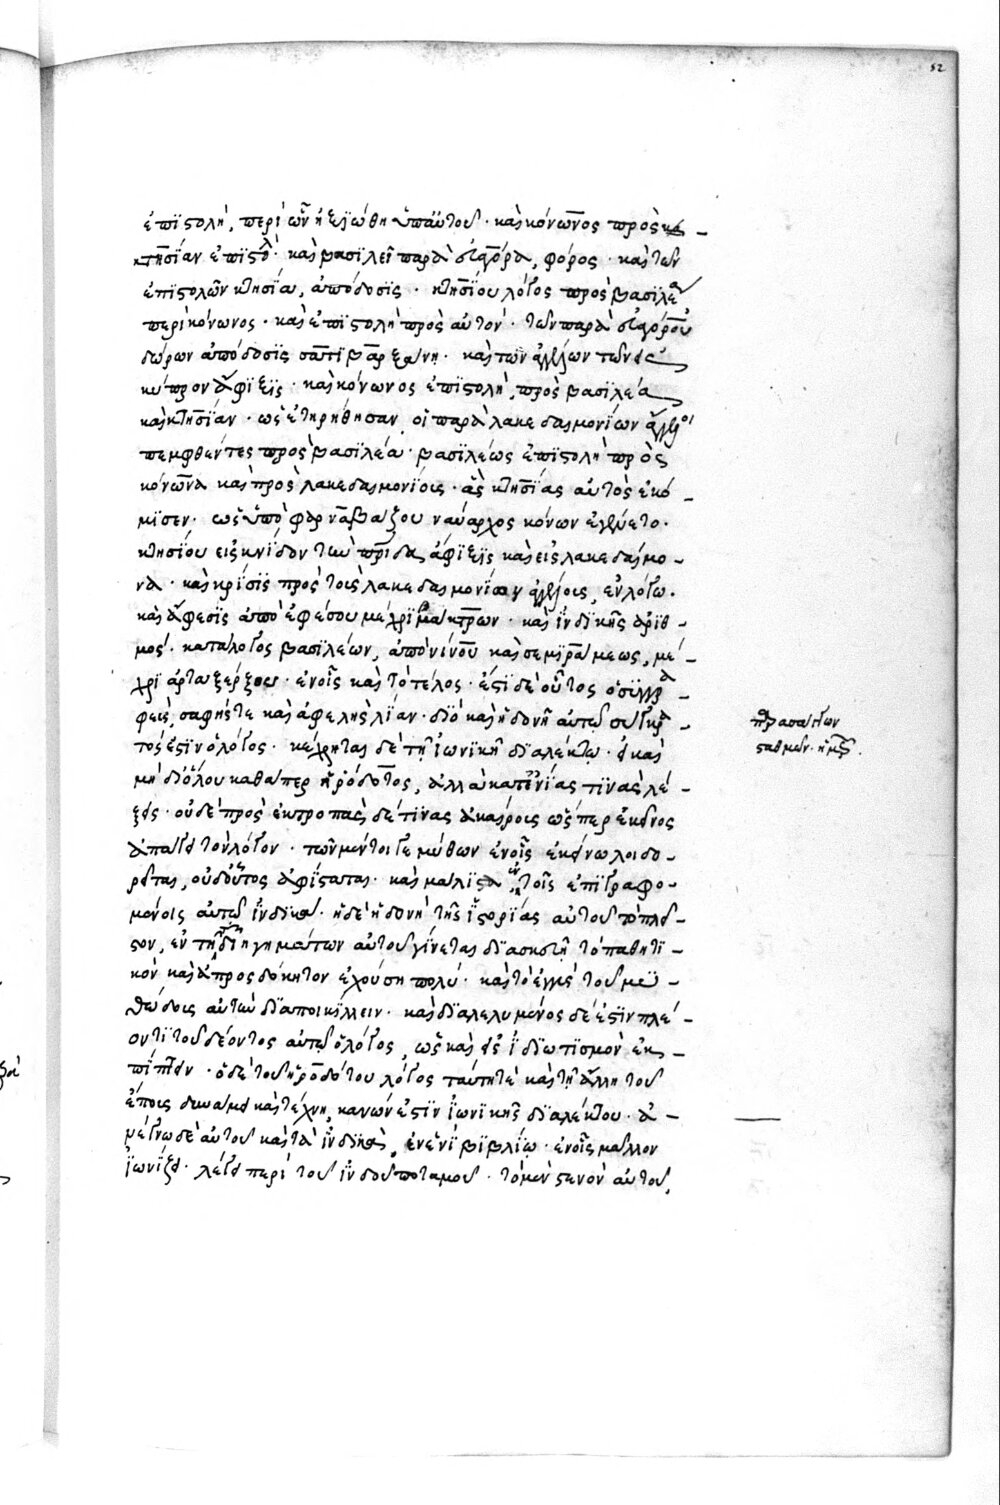 ἐπιστολὴ, περὶ ὧν ἠξιώθη ὑπαὐτοῦ· καὶ κόνωνος πρὸς κτ -
κτησίαν ἐπιστολ· καὶ βασιλεῖ παρὰ εὐαγόρα, φόρος· καὶ τῶν
ἐπιστολῶν κτησία, ἀπόδοσις· κτησίου λόγος πρὸς βασιλέα
περὶ κόνωνος· καὶ ἐπιστολὴ πρὸς αὐτόν· τῶν παρὰ εὐαγόρου
δώρων ἀπόδοσις σατιβαρζάνη· καὶ τῶν ἀγγέλων τῶν εἰς
κύπρον ἄφιξις· καὶ κόνωνος ἐπιστολὴ, πρὸς βασιλέα
καὶ κτησίαν· ὡς ἐτηρήθησαν, οἱ παρὰ λακεδαιμονίων ἄγγελοι
πεμφθέντες πρὸς βασιλέα· βασιλέως ἐπιστολὴ πρὸς
κόνωνα καὶ πρὸς λακεδαιμονίοις· ἃς κτησίας αὐτὸς ἐκό -
μισεν· ὡς ὑπὸ φαρναβάζου ναύαρχος κόνων ἐγένετο·
κτησίου εἰς κνίδον τὴν πρίδα ἄφιξις καὶ εἰς λακεδαίμο -
να· καὶ κρίσις πρὸς τοὺς λακεδαιμονίων ἀγγέλοις, ἐν λόγω·
καὶ ἄφεσις ἀπὸ ἐφέσου μέχρι βάκτρων· καὶ ἰνδικῆς ἀριθ -
μός· κατάλογος βασιλέων, ἀπὸ νίνου καὶ σεμιράμεως, μέ -
χρι ἀρταξέρξου· ἐν οἷς καὶ τὸ τέλος· ἔστι δὲ οὗτος ὁ συγγρα -
φεὺς, σαφής τε καὶ ἀφελὴς λίαν· διὸ καὶ ἡδονῇ αὐτῷ σύγκρα -
τός ἐστιν ὁ λόγος· κέχρηται δὲ τῇ ἰωνικῇ διαλέκτω· εἰ καὶ
μὴ διόλου καθάπερ ἡρόδοτος, ἀλλὰ κατενίας τινὰς λέ -
ξεις· οὐδὲ πρὸς ἐκτροπὰς δέ τινας ἀκαίροις ὥσπερ ἐκεῖνος
ἀπάγει τὸν λόγον· τῶν μέντοι γε μύθων ἐν οἷς ἐκείνω λοιδο -
ρεῖται, οὐδοὗτος ἀφίσταται· καὶ μάλιστα ἐν τοῖς ἐπιγραφο -
μένοις αὐτῷ ἰνδικά· ἡ δὲ ἡδονὴ τῆς ἱστορίας αὐτοῦ τὸ πλεῖ -
στον, ἐν τῇ διηγημάτων αὐτοῦ γίνεται διασκευῇ τὸ παθητι -
κὸν καὶ ἀπροσδόκητον ἐχούση πολύ· καὶ τὸ ἐγγὺς τοῦ μυ -
θώδοις αὐτὴν διαποικίλλειν· καὶ διαλελυμένος δέ ἐστιν πλέ -
ον τι τοῦ δέοντος αὐτῷ ὁ λόγος, ὡς καὶ εἰς ἰδιωτισμὸν ἐκ -
πίπτειν· ὁ δὲ τοῦ ἡροδότου λόγος ταύτη τὲ καὶ τῇ ἄλλη τοῦ
ἔποις δυνάμει καὶ τέχνη, κανών ἐστιν ἰωνικῆς διαλέκτου· ἀ -
νέγνω δὲ αὐτοῦ καὶ τὰ ἰνδικὰ, ἐν ἑνὶ βιβλίω· ἐν οἷς μᾶλλον
ἰωνίζει· λέγει περὶ τοῦ ἰνδοῦ ποταμοῦ· τὸ μὲν στενὸν αὐτοῦ,